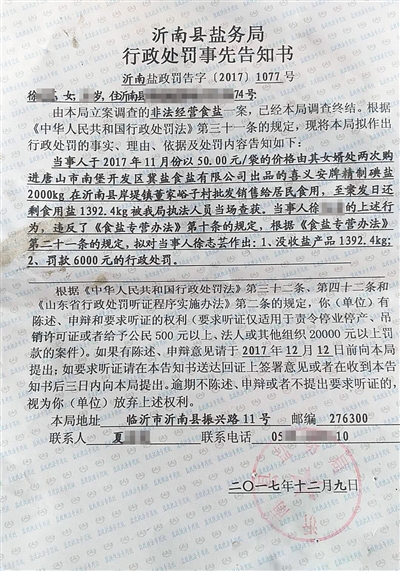 沂南县盐务局
行政处罚事先告知书
沂南 盐政罚告字〔2017〕1077 号
徐 女, 岁, 住沂南县 74号
由本局立案调查的非法经营食盐一案，已经本局调查终结。根据
《中华人民共和国行政处罚法》第三十一条的规定，现将本局拟作出
行政处罚的事实、理由、依据及处罚内容告知如下：
当事人于 2017 年 11 月份以 50.00 元/袋的价格由其女婿处两次购
进唐山市南堡开发区冀盐食盐有限公司出品的喜义安牌精制碘盐
2000kg 在沂南县岸堤镇董家峪子村批发销售给居民食用，至案发日还
剩食用盐 1392.4kg 被我局执法人员当场查获。当事人徐 的上述行
为，违反了《食盐专营办法》第十条的规定，根据《食盐专营办法》
第二十一条的规定，拟对当事人徐志芸作出：1、没收盐产品 1392.4kg；
2、罚款 6000 元的行政处罚。
根据《中华人民共和国行政处罚法》第三十二条、第四十二条和
《山东省行政处罚听证程序实施办法》第二条的规定，你（单位）有
陈述、申辩和要求听证的权利（要求听证仅适用于责令停业停产、吊
销许可证或者给予公民 500 元以上、法人或其他组织 20000 元以上罚
款的案件）。如果有陈述、申辩意见请于 2017 年 12 月 12 日前向本局
提出；如要求听证请在本告知书送达回证上签署意见或者在收到本告
知书后三日内向本局提出。逾期不陈述、申辩或者不提出要求听证的，
视为你（单位）放弃上述权利。
本局地址 临沂市沂南县振兴路 11 号 邮编 276300
联系人 夏 联系电话 05 10
二〇一七年十二月九日